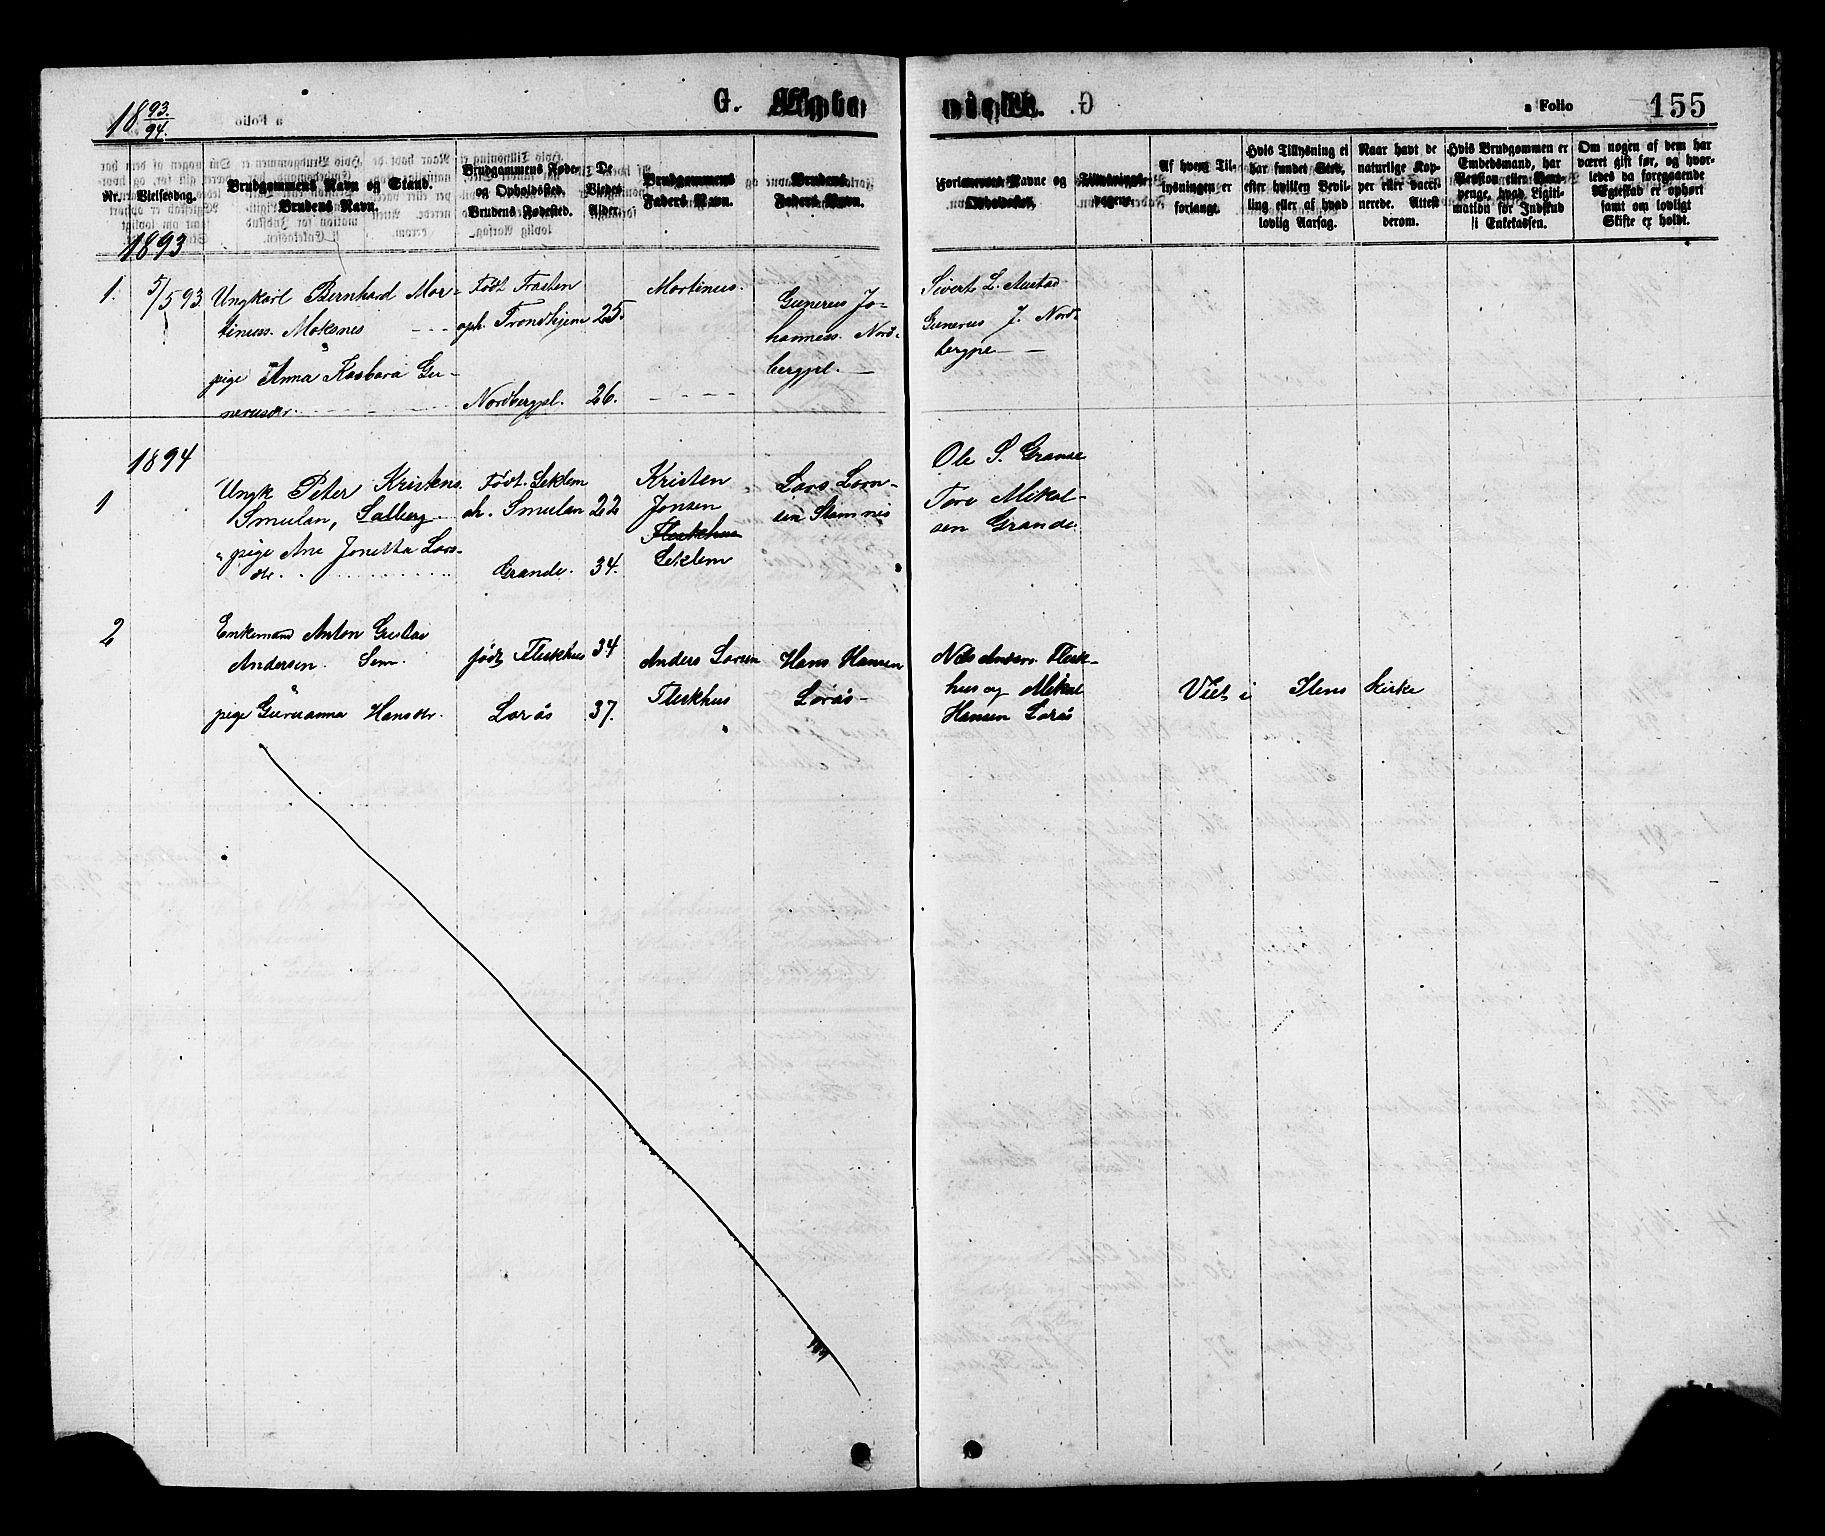 18 93./94.
G.
a Folio 155
Nr.
Vielsesdag.
Brudgommens Navn og Stand.
Brudens Navn.
Brudgommens Føde-
og Opholdssted.
Brudens Fødested.
De
Viedes
Alder.
Brudgommens
Faders Navn.
Brudens
Faders Navn.
Forlovernes Navne og
Opholdssted.
Tillysnings-
dagene.
Af hvem Til-
lysningen er
forlangt.
Hvis Tillysning ei
har fundet Sted,
efter hvilken Bevil-
ling eller af hvad
lovlig Aarsag.
Naar havt de
naturlige Kop-
per eller vacci-
nerede. Attest
derom.
Hvis Brudgommen er
Embedsmand, har
Pension eller Vart-
penge, hvad Ligiti-
mation før Indskud
i Enkekassen.
Om nogen af dem har
været gift før, og hvor-
ledes da foregaaende
Ægteskab er ophørt
samt om lovligt
Skifte er holdt.
1893
1.
5/5 93
Ungkarl Bernhard Mar-
tinius. Moksnes
pige Anna Kasbara Gu-
nerusdr.
Født Frosten
oph. Trondhjem
Nordbergpl.
25.
26.
Martinus.
Gunerus Jo-
hanness. Nord-
bergpl.
Sivert L. Austad
Gunerus J. Nord-
bergpl
1894
1
Ungk Peter Kristens.
Smulan, Salberg
pige Ane Jonetta Lars-
dr.
Født. Leklem
oh. Smulan
Grande.
22
34.
Kristen
Jonsen
Fleskhus
Leklem
Lars Lorn-
sen Stamnes
Ole S. Grande
Tore Mikal-
sen Grande.
2
Enkemand Anton Gustav
Andersen. Sem.
pige Guruanna Hansdr.
født Fleskhus
Lorås
34
37.
Anders Larsen
Fleskhus
Hans Hansen
Lorås
Nils Anders. Flesk-
hus og Mikal
Hansen Lorås
Viet i Ilens Kirke